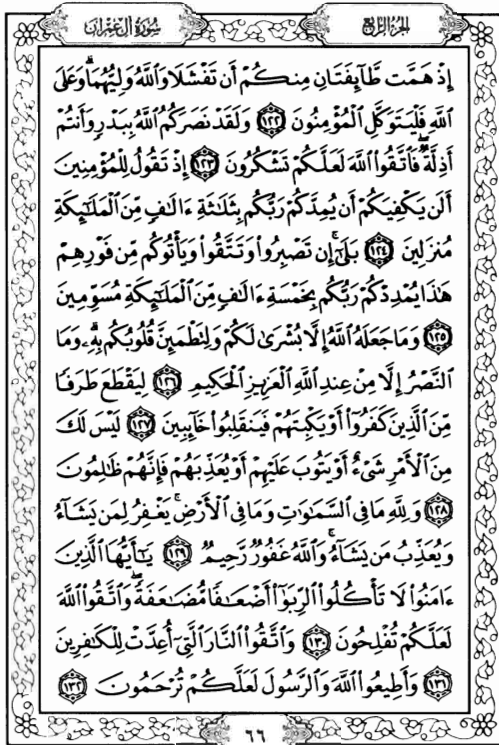 سُورَةُ آلِ عِمْرَان
الجُزْءُ الرَّابِعُ
إِذْ هَمَّت طَّآئِفَتَانِ مِنكُمْ أَن تَفْشَلَا وَٱللَّهُ وَلِيُّهُمَاۗ وَعَلَى
ٱللَّهِ فَلْيَتَوَكَّلِ ٱلْمُؤْمِنُونَ ١٢٢ وَلَقَدْ نَصَرَكُمُ ٱللَّهُ بِبَدْرٍ وَأَنتُمْ
أَذِلَّةٌۖ فَٱتَّقُوا۟ ٱللَّهَ لَعَلَّكُمْ تَشْكُرُونَ ١٢٣ إِذْ تَقُولُ لِلْمُؤْمِنِينَ
أَلَن يَكْفِيَكُمْ أَن يُمِدَّكُمْ رَبُّكُم بِثَلَٰثَةِ ءَالَٰفٍ مِّنَ ٱلْمَلَٰٓئِكَةِ
مُنزَلِينَ ١٢٤ بَلَىٰٓۚ إِن تَصْبِرُوا۟ وَتَتَّقُوا۟ وَيَأْتُوكُم مِّن فَوْرِهِمْ
هَٰذَا يُمْدِدْكُمْ رَبُّكُم بِخَمْسَةِ ءَالَٰفٍ مِّنَ ٱلْمَلَٰٓئِكَةِ مُسَوِّمِينَ
١٢٥ وَمَا جَعَلَهُ ٱللَّهُ إِلَّا بُشْرَىٰ لَكُمْ وَلِتَطْمَئِنَّ قُلُوبُكُم بِهِۦۗ وَمَا
ٱلنَّصْرُ إِلَّا مِنْ عِندِ ٱللَّهِ ٱلْعَزِيزِ ٱلْحَكِيمِ ١٢٦ لِيَقْطَعَ طَرَفًا
مِّنَ ٱلَّذِينَ كَفَرُوٓا۟ أَوْ يَكْبِتَهُمْ فَيَنقَلِبُوا۟ خَآئِبِينَ ١٢٧ لَيْسَ لَكَ
مِنَ ٱلْأَمْرِ شَىْءٌ أَوْ يَتُوبَ عَلَيْهِمْ أَوْ يُعَذِّبَهُمْ فَإِنَّهُمْ ظَٰلِمُونَ
١٢٨ وَلِلَّهِ مَا فِى ٱلسَّمَٰوَٰتِ وَمَا فِى ٱلْأَرْضِۚ يَغْفِرُ لِمَن يَشَآءُ
وَيُعَذِّبُ مَن يَشَآءُۚ وَٱللَّهُ غَفُورٌ رَّحِيمٌ ١٢٩ يَٰٓأَيُّهَا ٱلَّذِينَ
ءَامَنُوا۟ لَا تَأْكُلُوا۟ ٱلرِّبَوٰٓا۟ أَضْعَٰفًا مُّضَٰعَفَةًۖ وَٱتَّقُوا۟ ٱللَّهَ
لَعَلَّكُمْ تُفْلِحُونَ ١٣٠ وَٱتَّقُوا۟ ٱلنَّارَ ٱلَّتِىٓ أُعِدَّتْ لِلْكَٰفِرِينَ
١٣١ وَأَطِيعُوا۟ ٱللَّهَ وَٱلرَّسُولَ لَعَلَّكُمْ تُرْحَمُونَ ١٣٢
٦٦